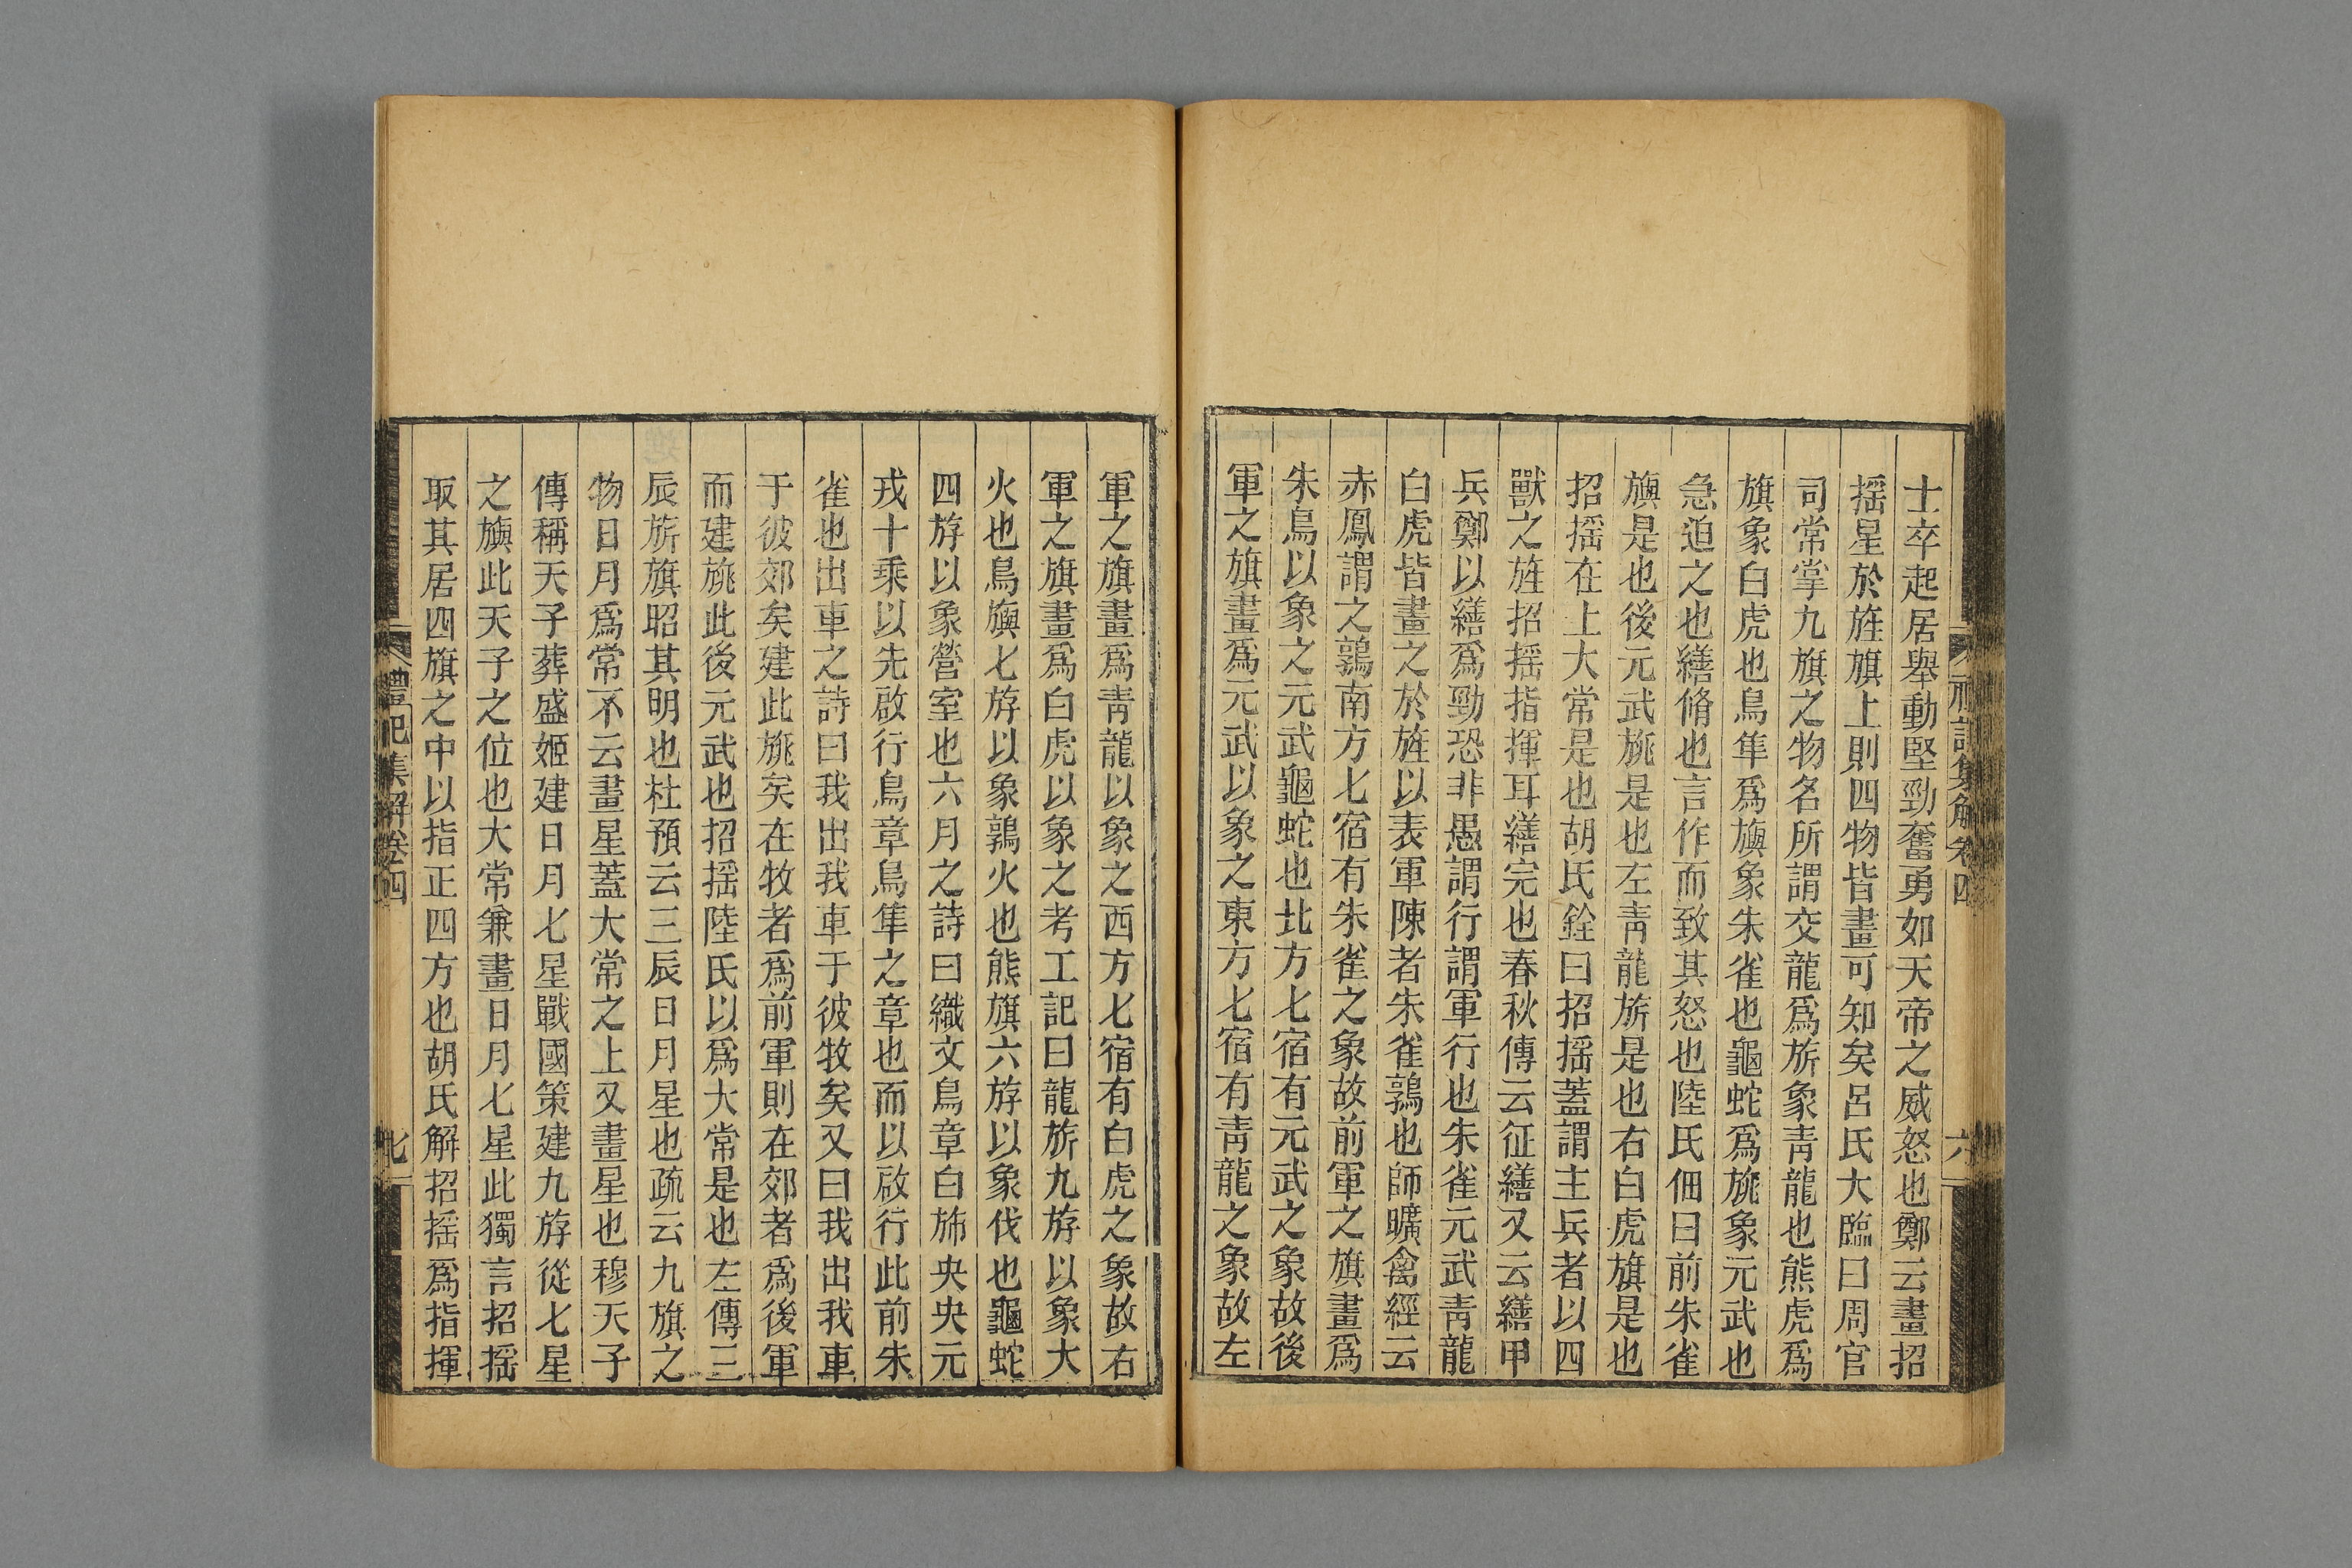 禮記集解卷四
六
士卒起居舉動堅勁奮勇如天帝之威怒也鄭云畫招
搖星於旌旗上則四物皆畫可知矣呂氏大臨曰周官
司常掌九旗之物名所謂交龍爲旂象靑龍也熊虎爲
旗象白虎也鳥隼爲旟象朱雀也龜蛇爲旐象元武也
急迫之也繕脩也言作而致其怒也陸氏佃曰前朱雀
旟是也後元武旐是也左靑龍旂是也右白虎旗是也
招搖在上大常是也胡氏銓曰招搖蓋謂主兵者以四
獸之旌招搖指揮耳繕完也春秋傳云征繕又云繕甲
兵鄭以繕爲勁恐非愚謂行謂軍行也朱雀元武靑龍
白虎皆畫之於旌以表軍陳者朱雀鶉也師曠禽經云
赤鳳謂之鶉南方七宿有朱雀之象故前軍之旗畫爲
朱鳥以象之元武龜蛇也北方七宿有元武之象故後
軍之旗畫爲元武以象之東方七宿有靑龍之象故左
軍之旗畫爲靑龍以象之西方七宿有白虎之象故右
軍之旗畫爲白虎以象之考工記曰龍旂九斿以象大
火也鳥旟七斿以象鶉火也熊旗六斿以象伐也龜蛇
四斿以象營室也六月之詩曰織文鳥章白斾央央元
戎十乘以先啟行鳥章鳥隼之章也而以啟行此前朱
雀也出車之詩曰我出我車于彼牧矣又曰我出我車
于彼郊矣建此旐矣在牧者爲前軍則在郊者爲後軍
而建旐此後元武也招搖陸氏以爲大常是也左傳三
辰旂旗昭其明也杜預云三辰日月星也疏云九旗之
物日月爲常不云畫星蓋大常之上又畫星也穆天子
傳稱天子葬盛姬建日月七星戰國策建九斿從七星
之旟此天子之位也大常兼畫日月七星此獨言招搖
取其居四旗之中以指正四方也胡氏解招搖爲指揮
禮記集解卷四
七